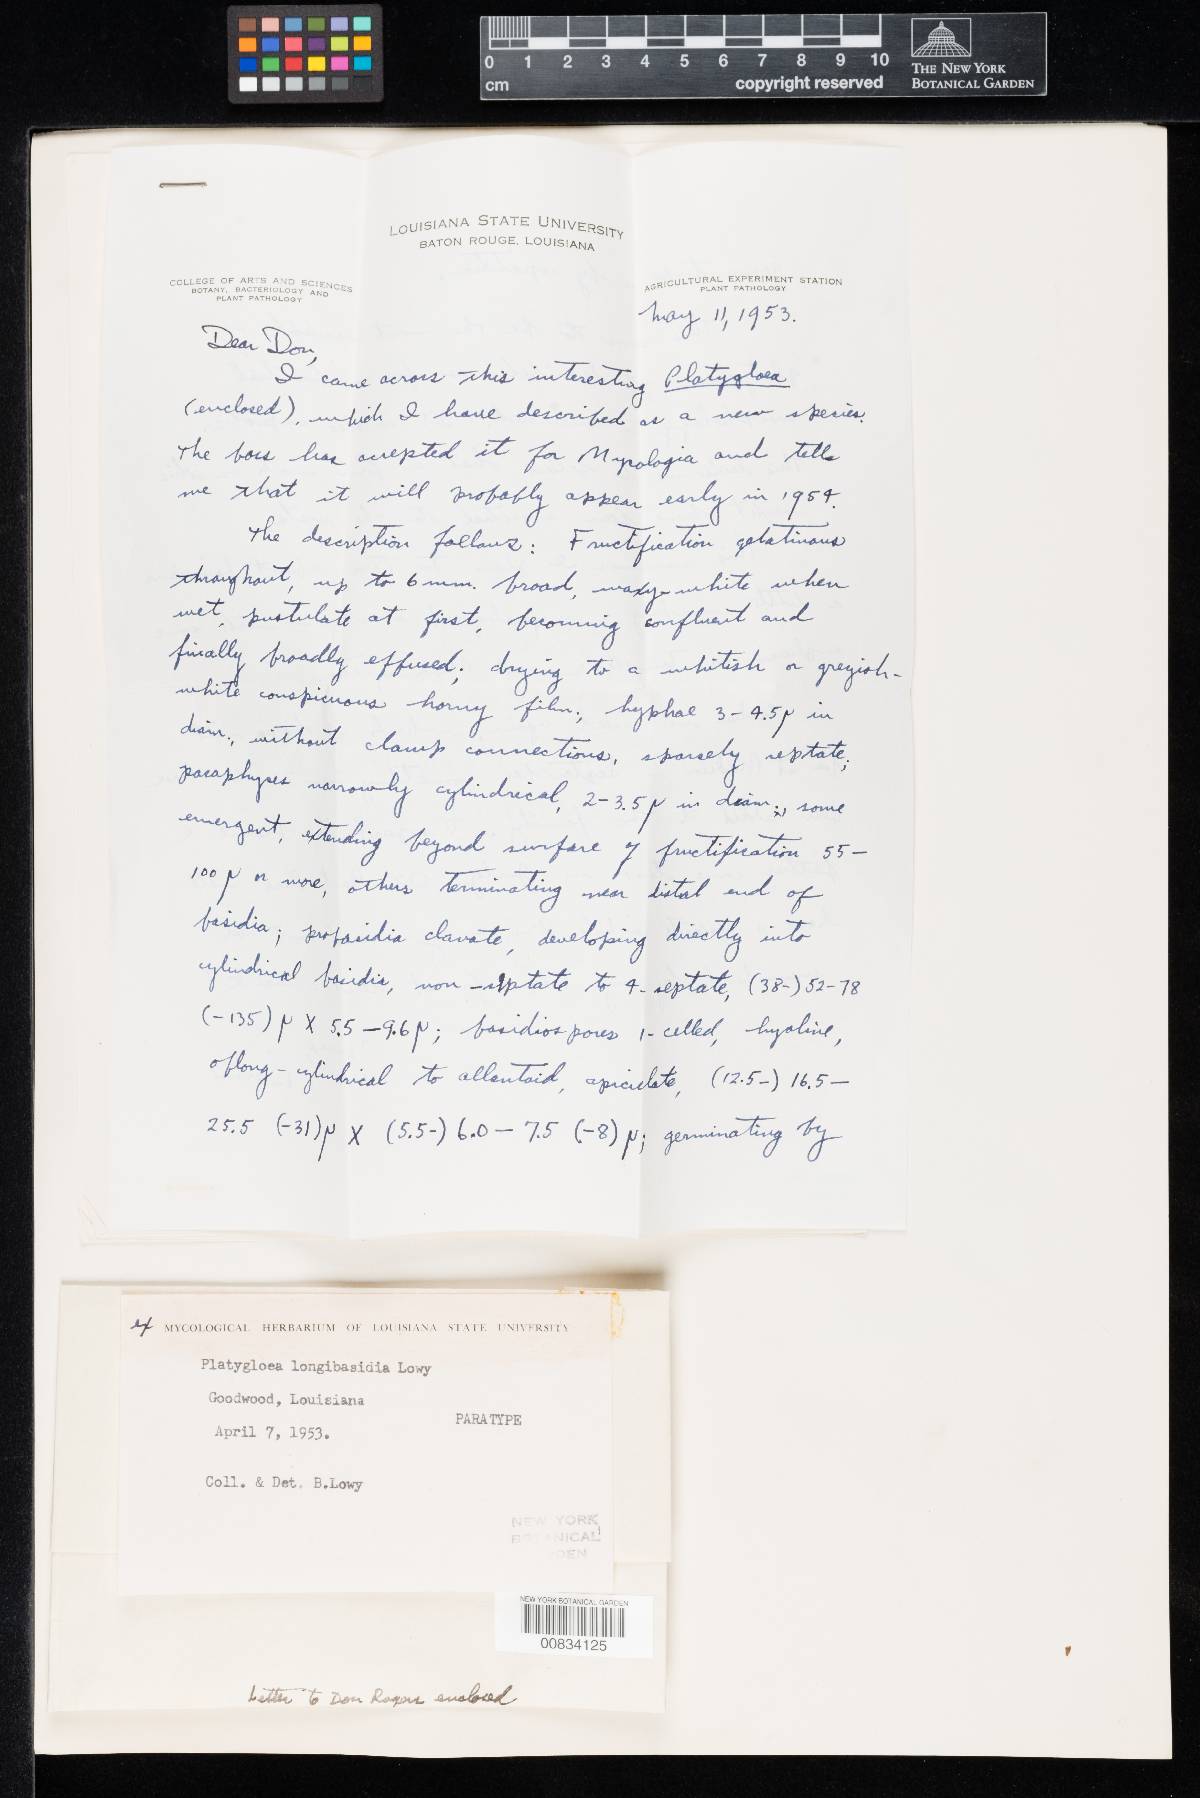 0 1 2 3 4 5 6 7 8 9 10
cm
copyright reserved
THE NEW YORK
BOTANICAL GARDEN
LOUISIANA STATE UNIVERSITY
BATON ROUGE, LOUISIANA
COLLEGE OF ARTS AND SCIENCES
BOTANY, BACTERIOLOGY AND
PLANT PATHOLOGY
AGRICULTURAL EXPERIMENT STATION
PLANT PATHOLOGY
May 11, 1953.
Dear Don,
I came across this interesting Platygloea
(enclosed), which I have described as a new species.
The boss has accepted it for Mycologia and tells
me that it will probably appear early in 1954.
The description follows: Fructification gelatinous
throughout, up to 6 mm. broad, waxy-white when
wet, pustulate at first, becoming confluent and
finally broadly effused; drying to a whitish or greyish-
white conspicuous horny film; hyphae 3-4.5μ in
diam., without clamp connections, sparsely septate;
paraphyses narrowly cylindrical, 2-3.5μ in diam., some
emergent, extending beyond surface of fructification 55-
100μ or more, others terminating near distal end of
basidia; probasidia clavate, developing directly into
cylindrical basidia, non-septate to 4-septate, (38-) 52-78
(-135)μ X 5.5-9.6μ; basidiospores 1-celled, hyaline,
oblong-cylindrical to allantoid, apiculate, (12.5-) 16.5-
25.5 (-31)μ X (5.5-) 6.0-7.5 (-8)μ; germinating by
ex MYCOLOGICAL HERBARIUM OF LOUISIANA STATE UNIVERSITY
Platygloea longibasidia Lowy
Goodwood, Louisiana
PARATYPE
April 7, 1953.
Coll. & Det. B.Lowy
NEW YORK
BOTANICAL
GARDEN
NEW YORK BOTANICAL GARDEN
00834125
Letter to Don Rogers enclosed